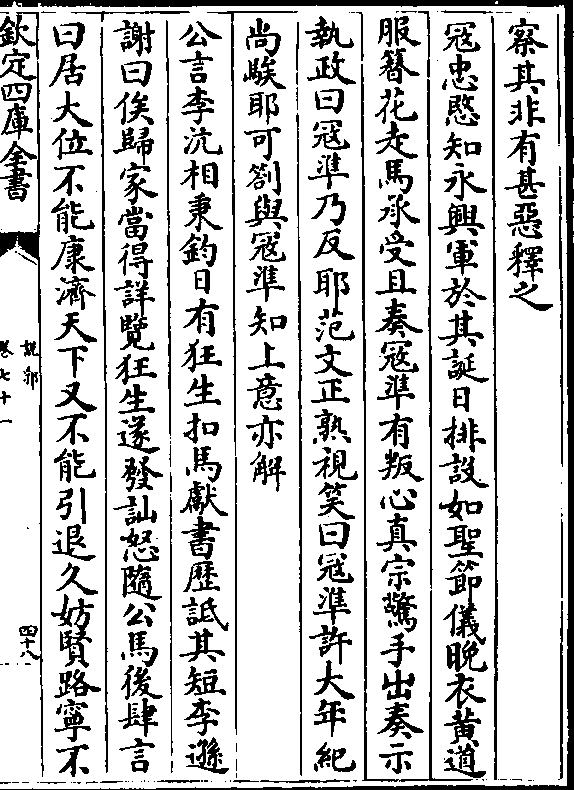 察其非有甚惡釋之
冦忠愍知永興軍於其誕日排設如聖節儀晚衣黄道
服簮花走馬承受且奏冦準有叛心真宗驚手出奏示
執政曰冦準乃反耶范文正熟視笑曰冦準許大年紀
尚騃耶可劄與冦準知上意亦解
公言李沆相秉鈞日有狂生扣馬獻書歷詆其短李遜
謝曰俟歸家當得詳覽狂生遂發訕怒隨公馬後肆言
曰居大位不能康濟天下又不能引退久妨賢路寧不
欽定四庫全書
說郛
卷七十一
四十八